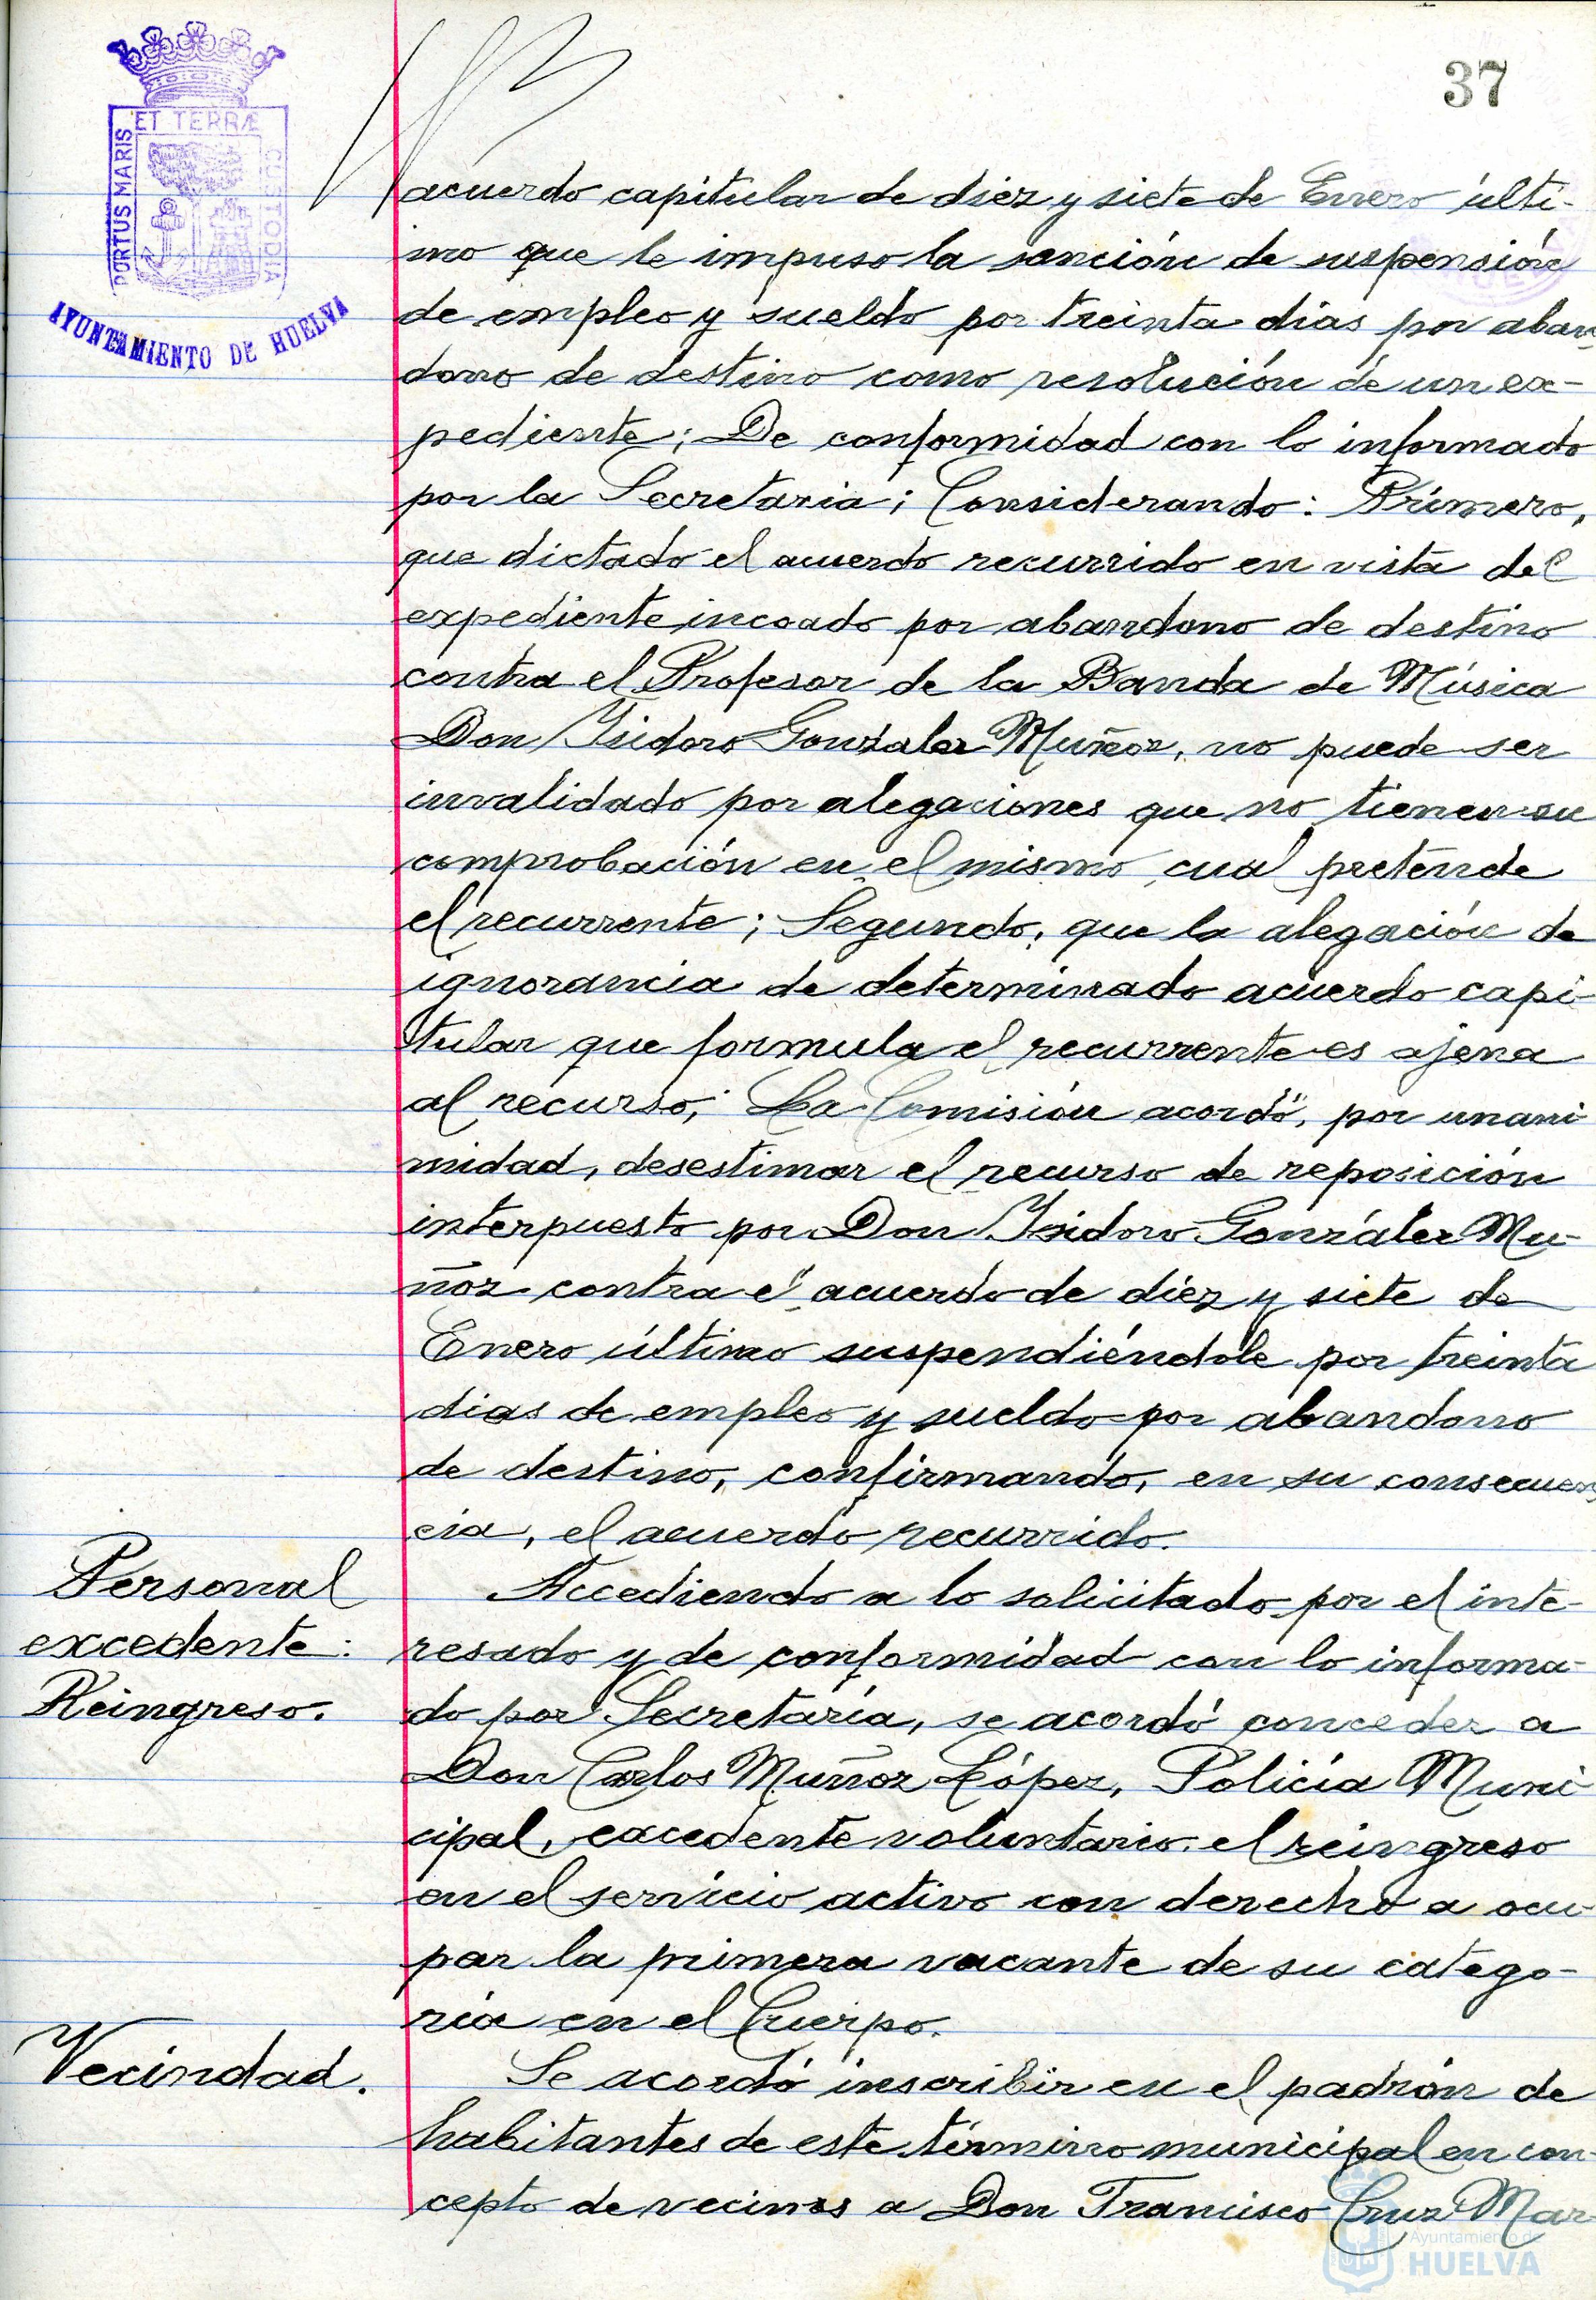 37
ET TERRÆ
PORTUS MARIS
CUSTODIA
AYUNTAMIENTO DE HUELVA
acuerdo capitular de diez y siete de Enero últi-
mo que le impuso la sanción de suspensión
de empleo y sueldo por treinta dias por aban
dono de destino como resolución de un ex-
pediente; De conformidad con lo informado
por la Secretaria; Considerando: Primero,
que dictado el acuerdo recurrido en vista del
expediente incoado por abandono de destino
contra el Profesor de la Banda de Música
Don Isidoro Gonzalez Muñoz, no puede ser
invalidado por alegaciones que no tienen su
comprobación en el mismo, cual pretende
el recurrente; Segundo, que la alegación de
ignorancia de determinado acuerdo capi-
tular que formula el recurrente es ajena
al recurso; La Comisión acordó, por unani
midad, desestimar el recurso de reposición
interpuesto por Don Isidoro González Mu-
ñoz contra el acuerdo de diez y siete de
Enero último suspendiéndole por treinta
dias de empleo y sueldo por abandono
de destino, confirmando, en su consecuen
cia, el acuerdo recurrido.
Personal
excedente:
Reingreso.
Accediendo a lo solicitado por el inte-
resado y de conformidad con lo informa-
do por Secretaría, se acordó conceder a
Don Carlos Muñoz López, Policía Muni
cipal, excedente voluntario, el reingreso
en el servicio activo con derecho a ocu-
par la primera vacante de su catego-
ría en el Cuerpo.
Vecindad.
Se acordó inscribir en el padrón de
habitantes de este término municipal en con-
cepto de vecinos a Don Francisco Cruz Mar
Ayuntamiento de
HUELVA